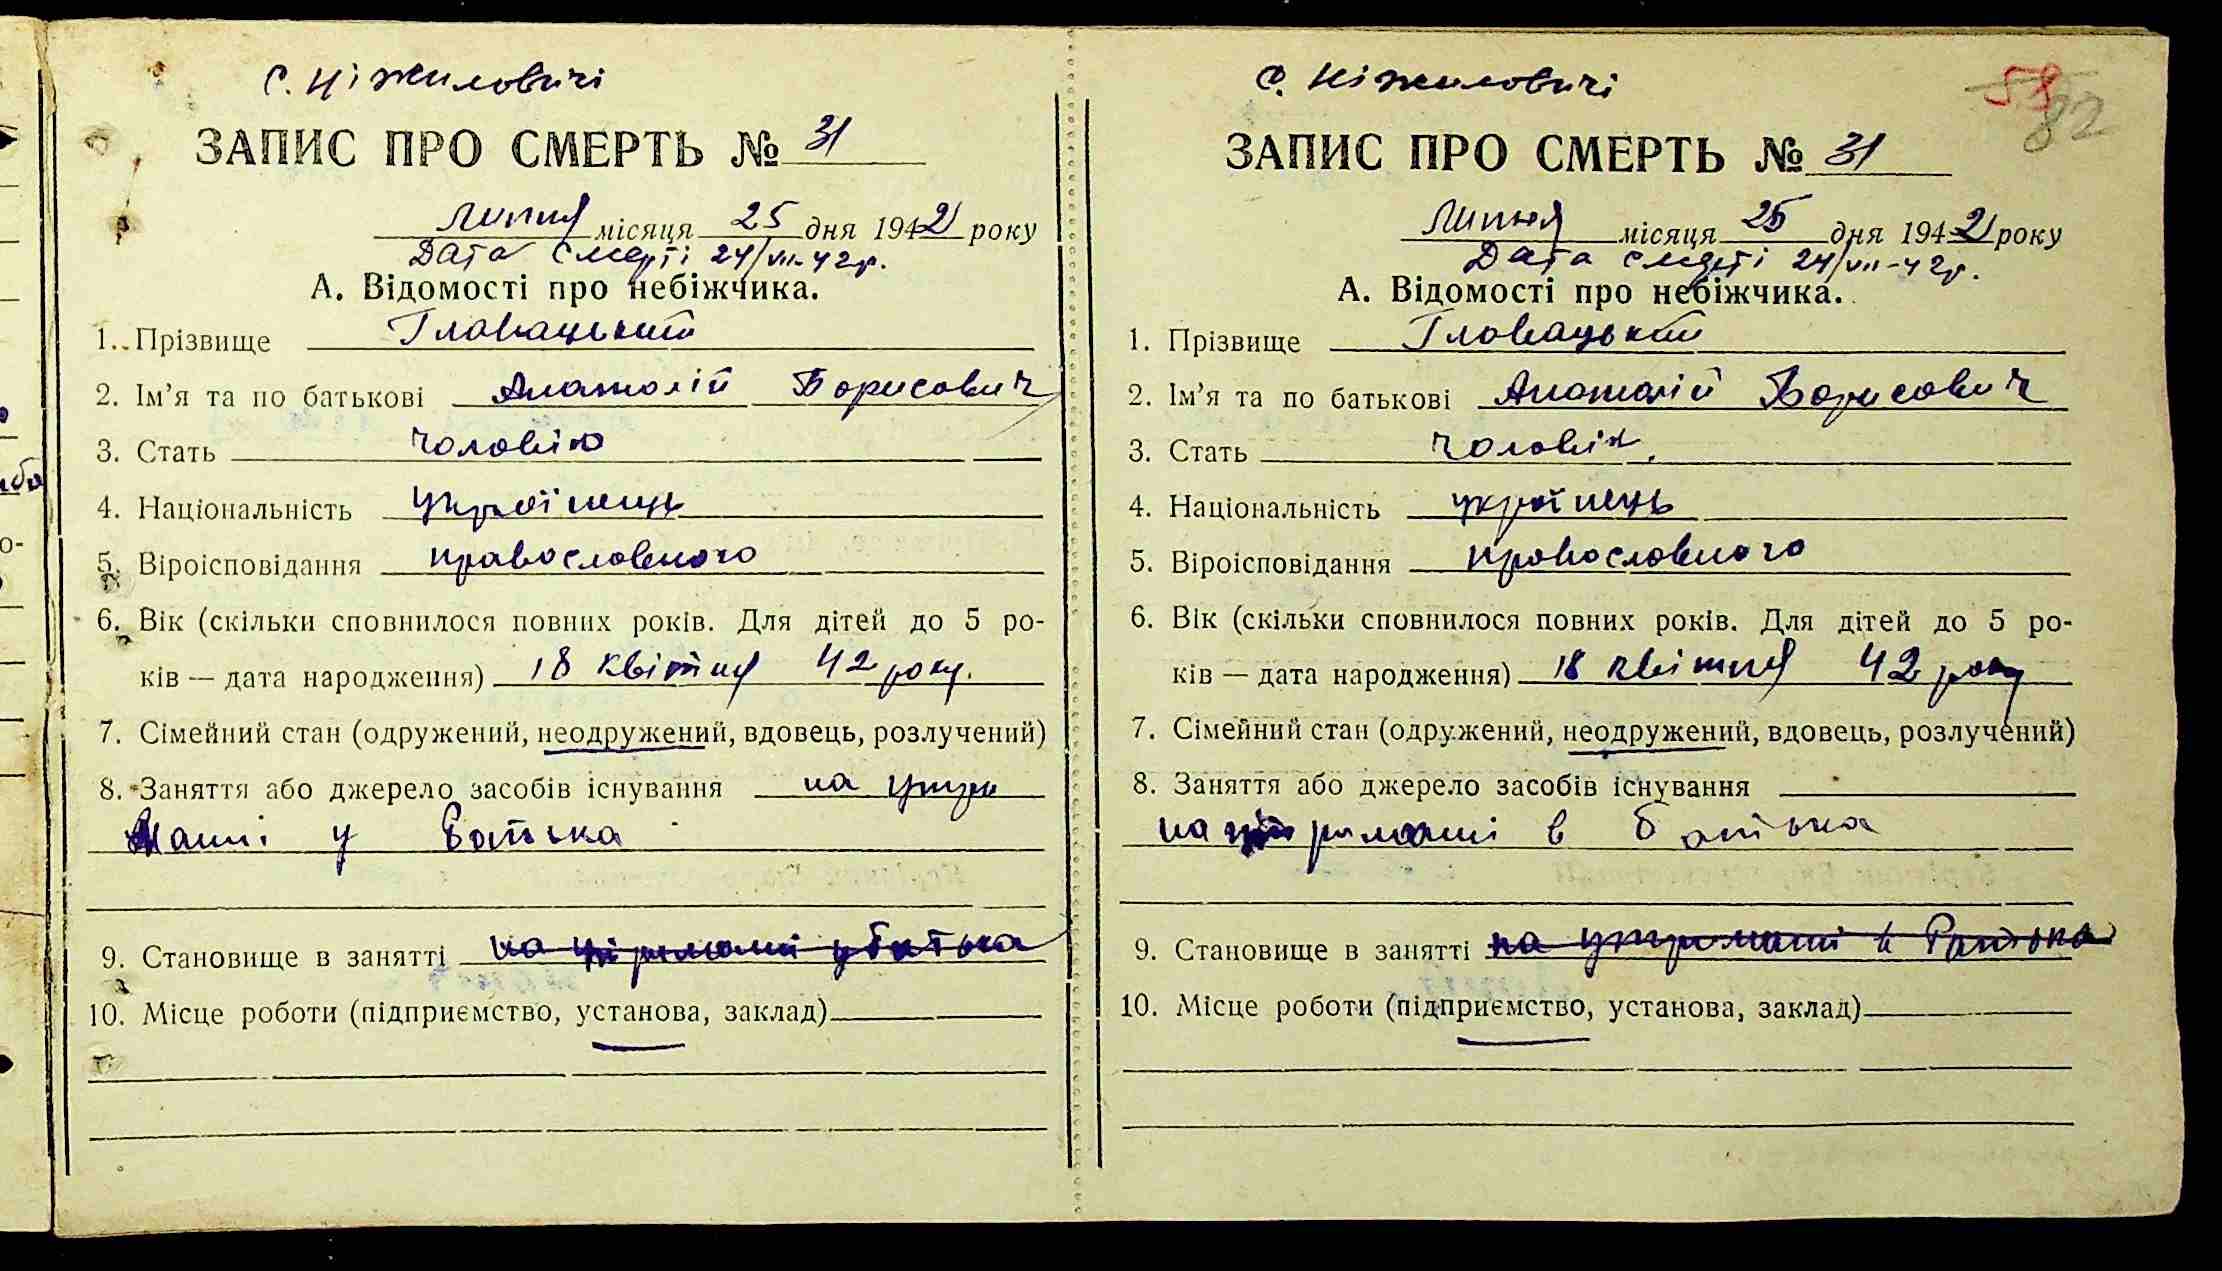 с. Ніжиловичі
ЗАПИС ПРО СМЕРТЬ № 31
Липня місяця 25 дня 1942 року
Дата смерті 24/VII-42р.
А. Відомості про небіжчика.
1. Прізвище Гловацький
2. Ім'я та по батькові Анатолій Борисович
3. Стать чоловік
4. Національність українець
5. Віроісповідання православного
6. Вік (скільки сповнилося повних років. Для дітей до 5 ро-
ків — дата народження) 18 квітня 42 року.
7. Сімейний стан (одружений, неодружений, вдовець, розлучений)
8. Заняття або джерело засобів існування на утри
манні у батька
9. Становище в занятті на утриманні у батька
10. Місце роботи (підприємство, установа, заклад)
с. Ніжиловичі
58
82
ЗАПИС ПРО СМЕРТЬ № 31
Липня місяця 25 дня 1942 року
Дата смерті 24/VII-42р.
А. Відомості про небіжчика.
1. Прізвище Гловацький
2. Ім'я та по батькові Анатолій Борисович
3. Стать чоловік.
4. Національність українець
5. Віроісповідання православного
6. Вік (скільки сповнилося повних років. Для дітей до 5 ро-
ків — дата народження) 18 квітня 42 року
7. Сімейний стан (одружений, неодружений, вдовець, розлучений)
8. Заняття або джерело засобів існування
на утриманні в батька
9. Становище в занятті на утриманні в батька
10. Місце роботи (підприємство, установа, заклад)